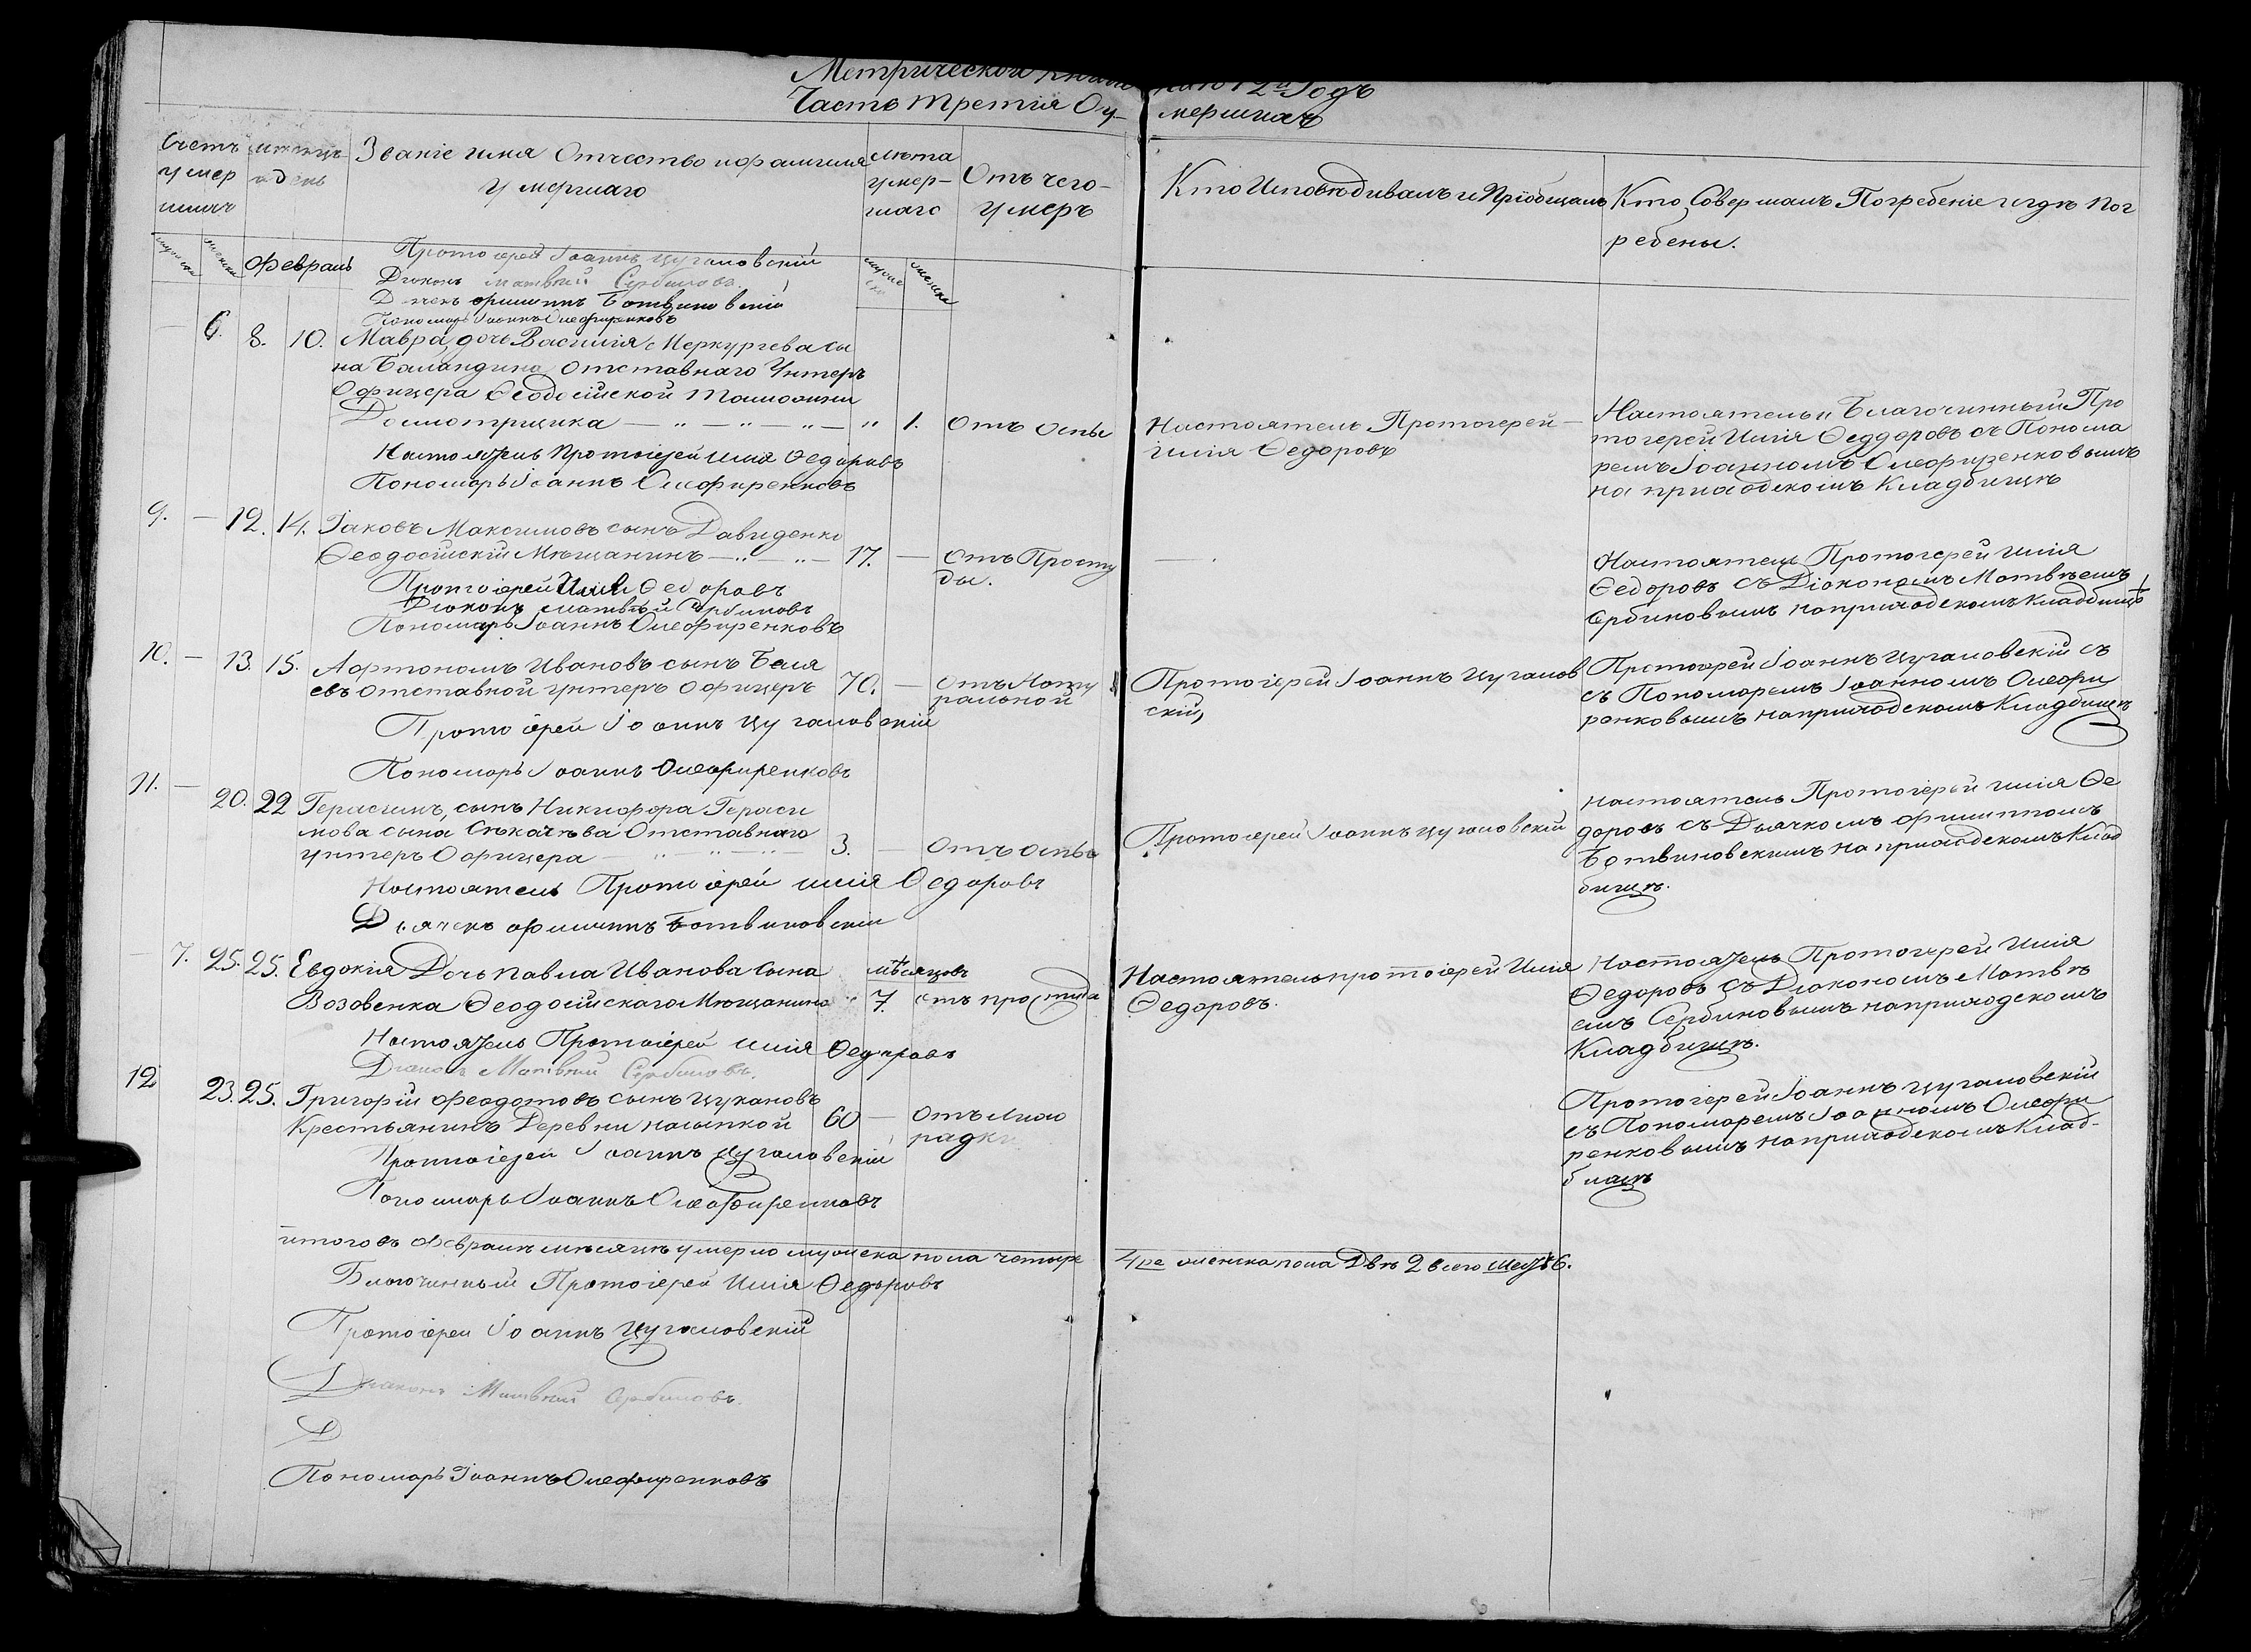 Метрической
Годъ
Часть третія Оу-
мершихъ
Счетъ умер шихъ
мѣсяцъ и день
Званіе имя Отчество и фамилія
умершаго
Лѣта умер-шаго
Отъ чего-умеръ
Кто Исповѣдивалъ и Пріобщалъ
Кто Совершалъ Погребеніе и гдѣ Пог
ребены.
Февраль
Протоіерей Іоаннъ Цугаловскій
Діаконъ Матвѣй Сербиновъ.
Дьячекъ Филиппъ Ботвиновскій
Пономарь Іоаннъ Олефиренковъ
6. 8. 10. Мавра, дочь Василія Меркурьева сы
на Баландина Отставнаго Унтеръ
Офицера Ѳеодосійской Таможни
Досмотрщика — „ — „ — „ — „ 1. Отъ оспы
Настоятель Протоіерей
Илія Ѳедоровъ
Настоятель и Благочинный Про
тоіерей Илія Ѳеддоровъ съ Понома
ремъ Іоанномъ Олефиренковымъ
на приходскомъ Кладбищѣ
Настоятель Протоіерей Илія Ѳедоровъ
Пономарь Іоаннъ Олефиренковъ
9. — 12. 14. Іаковъ Максимовъ сынъ Давиденко
Ѳеодосійскій Мѣщанинъ — „ — „ — 17. — отъ Просту
ды.
Настоятель Протоіерей Илія
Ѳедоровъ съ Діакономъ Матвѣемъ
Сербиновымъ на приходскомъ Кладбищѣ
Протоіерей Илія Ѳедоровъ
Діаконъ Матвѣй Сербиновъ
Пономарь Іоаннъ Олефиренковъ
10. — 13. 15. Афтономъ Ивановъ сынъ Беля
евъ отставной унтеръ офицеръ 70. — отъ Нату
ральной
Протоіерей Іоаннъ Цугалов
скій,
Протоіерей Іоаннъ Цугаловскій съ
съ Пономаремъ Іоанномъ Олефи
ренковымъ на приходскомъ Кладбищѣ
Протоіерей Іоаннъ Цугаловскій
Пономарь Іоаннъ Олефиренковъ
11. — 20. 22 Герасимъ, сынъ Никифора Гераси
мова сына Отставнаго
унтеръ Офицера — „ — „ — „ 3. — Отъ оспы
Протоіерей Іоаннъ Цугаловскій
Настоятель Протоіерей Илія Ѳе
доровъ съ Дьячкомъ Филиппомъ
Ботвиновскимъ на приходскомъ Клад
бищѣ.
Настоятель Протоіерей Илія Ѳедоровъ
Дьячекъ Филиппъ Ботвиновскій
— 7. 25. 25. Евдокія Дочь Павла Иванова Сына
Возовенка Ѳеодосійскаго Мѣщанина „ мѣсяцовъ 7. отъ простуда
Настоятель протоіерей Илія
Ѳедоровъ.
Настоятель Протоіерей Илія
Ѳедоровъ съ Діакономъ Матвѣ
емъ Сербиновымъ на приходскомъ
Кладбищѣ.
Настоятель Протоіерей Илія Ѳедоровъ
Діаконъ Матвѣй Сербиновъ.
12 23. 25. Григорій Феодотовъ сынъ Цукановъ
Крестьянинъ Деревни насыпкой 60 — отъ Лихо
радки
Протоіерей Іоаннъ Цугаловскій
съ Пономаремъ Іоанномъ Олефи
ренковымъ на приходскомъ Клад-
бищѣ
Протоіерей Іоаннъ Цугаловскій
Пономарь Іоаннъ Олефиренковъ
итого въ Февралѣ мѣсяцѣ умерло мужеска пола четыре
4ре женска пола Двѣ 2 всего 6.
Благочинный Протоіерей Илія Ѳедоровъ
Протоіерей Іоаннъ Цугаловскій
Діаконъ Матвѣй Сербиновъ.
Д
Пономарь Іоаннъ Олефиренковъ